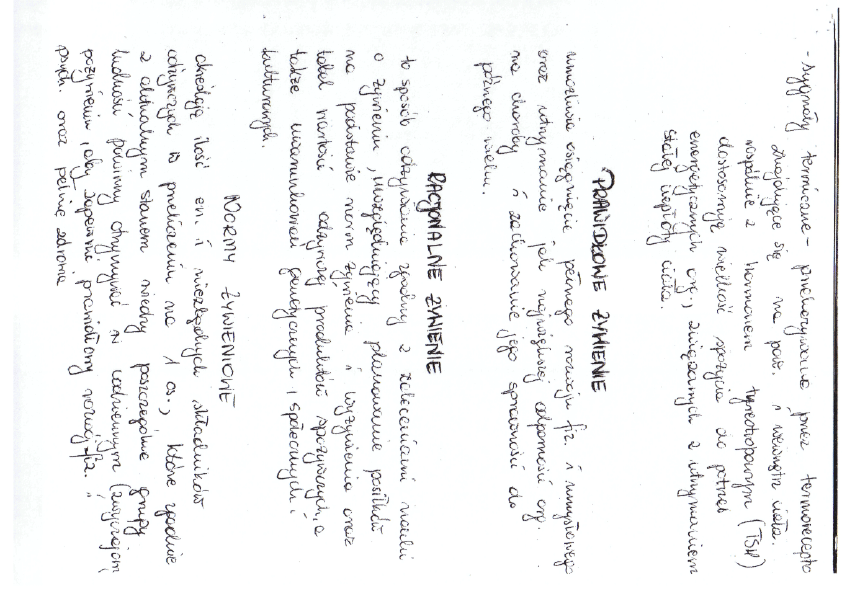 - sygnały termiczne - przekazywane przez termorecepto
znajdujące się na pow. i wewnątrz ciała.
wspólnie z hormonem tyreotropowym (TSH)
dostosowują wielkość spożycia do potrzeb
energetycznych org., związanych z utrzymaniem
stałej ciepłoty ciała.
PRAWIDŁOWE ŻYWIENIE
umożliwia osiągnięcie pełnego rozwoju fiz. i umysłowego
oraz utrzymanie jak największej odporności org.
na choroby i zachowanie jego sprawności do
późnego wieku.
RACJONALNE ŻYWIENIE
to sposób odżywiania zgodny z zaleceniami nauki
o żywieniu, uwzględniający planowanie posiłków
na podstawie norm żywienia i wyżywienia oraz
tabel wartości odżywczej produktów spożywczych, a
także uwarunkowań genetycznych i społecznych i
kulturowych.
NORMY ŻYWIENIOWE
określają ilość en. i niezbędnych składników
odżywczych w przeliczeniu na 1 os., które zgodnie
z aktualnym stanem wiedzy poszczególne grupy
ludności powinny otrzymywać w codziennym (zwyczajowym
pożywieniu, aby zapewnić prawidłowy rozwój fiz. i
psych. oraz pełnię zdrowia